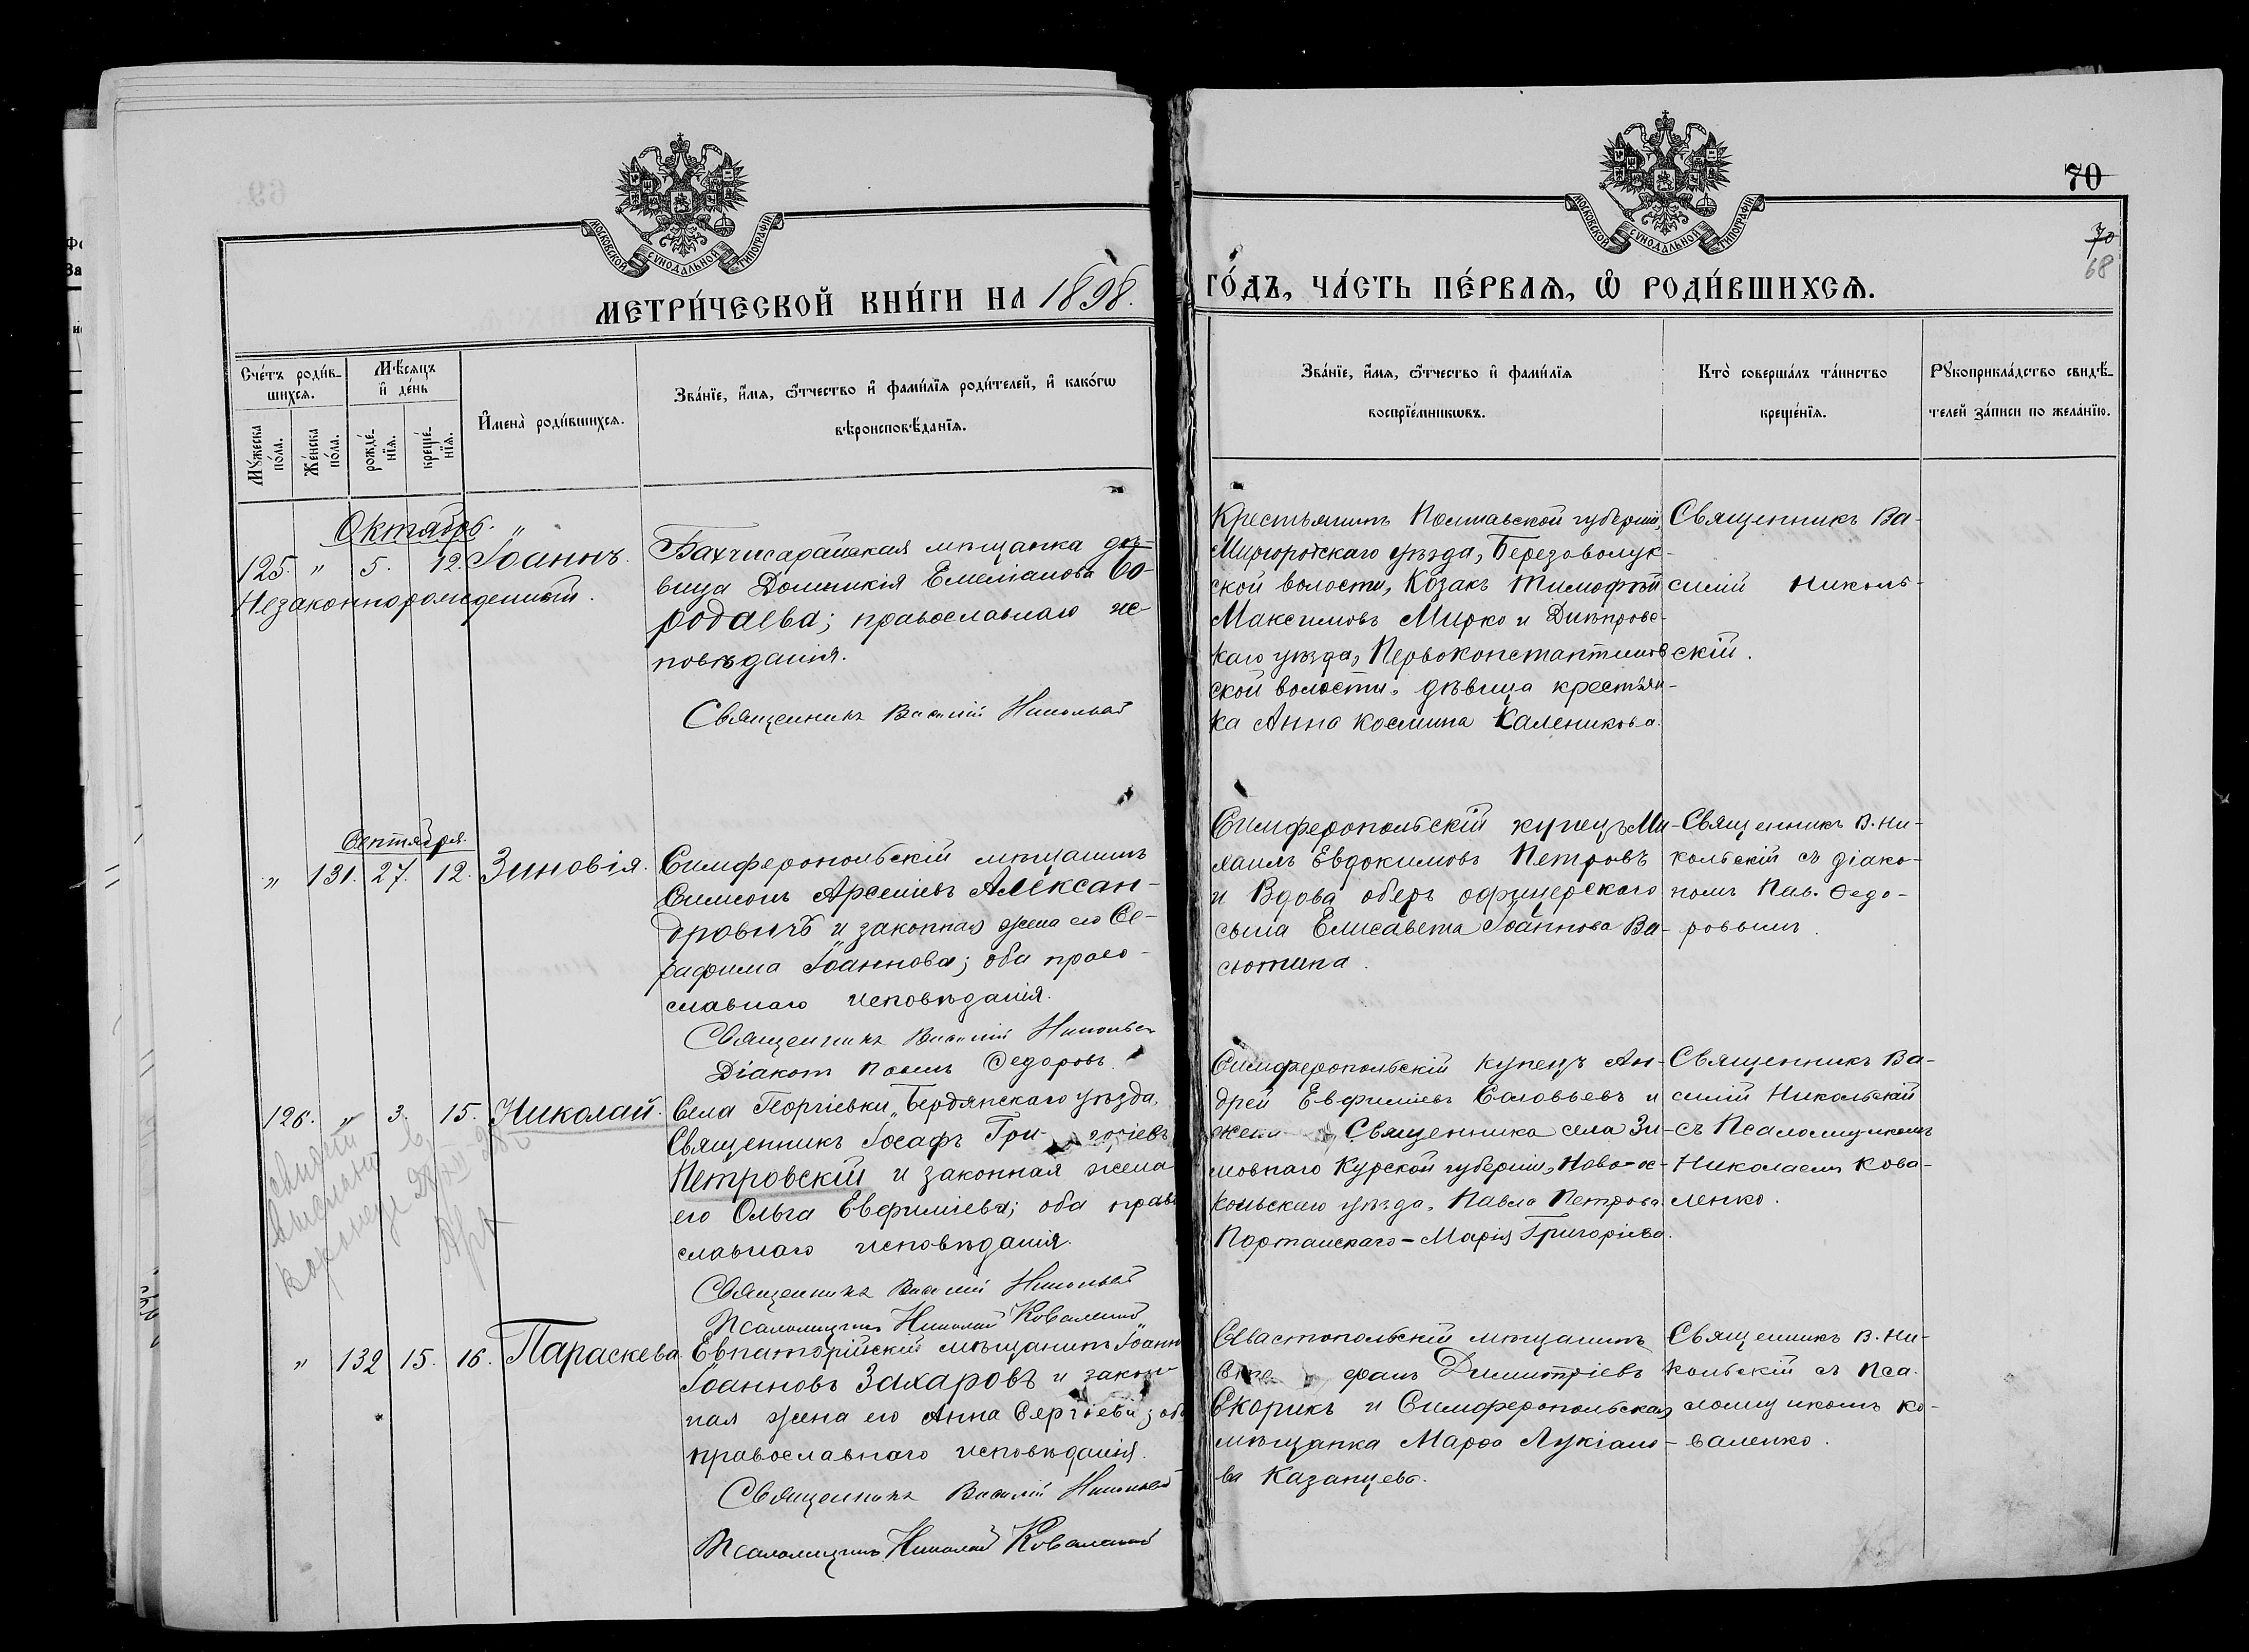 70
70
68
МОСКОВСКОЙ СѴНОДАЛЬНОЙ ТИПОГРАФІИ
МОСКОВСКОЙ СѴНОДАЛЬНОЙ ТИПОГРАФІИ
МЕТРИ́ЧЕСКОЙ КНИ́ГИ НА 1898.
ГО́ДЪ, ЧА́СТЬ ПЕ́РВАѦ, Ѡ҆ РОДИ́ВШИХСѦ.
Сче́тъ роди́в-
шихсѧ.
Мꙋ́жеска по́ла.
Же́нска по́ла.
Мѣ́сѧцъ
и҆ де́нь
рожде́-
нїѧ.
креще́-
нїѧ.
И҆мена̀ роди́вшихсѧ.
Зва́нїе, и҆́мѧ, ѻ҆́тчество и҆ фами́лїѧ роди́телей, и҆ како́гѡ
вѣроисповѣ́данїѧ.
Зва́нїе, и҆́мѧ, ѻ҆́тчество и҆ фами́лїѧ
воспрїе́мникѡвъ.
Кто̀ соверша́лъ та́инство
креще́нїѧ.
Рꙋкоприкла́дство свидѣ́-
телей за́писи по жела́нїю.
Октября.
125. " 5. 12. Іоаннъ.
Незаконнорожденный.
Бахчисарайская мѣщанка дѣ-
вица Домникія Емеліанова Бо-
родаева; православнаго ис-
повѣданія.
Священникъ Василій Никольскій
Крестьянинъ Полтавской губерніи,
Миргородскаго уѣзда, Березоволук-
ской волости, Козакъ Тимофей
Максимовъ Мирко и Днѣпровс-
каго уѣзда, Первоконстантинов
ской волости, дѣвица крестьян-
ка Анна Космина Каленикова.
Священникъ Ва-
силій Николь-
скій.
Сентября.
" 131. 27. 12. Зиновія.
Симферопольскій мѣщанинъ
Симеонъ Арсеніевъ Алексан-
дровичъ и законная жена его Се-
рафима Іоаннова; оба право-
славнаго исповѣданія.
Священникъ Василій Никольск
Діаконъ Павелъ Федоровъ.
Симферопольскій купецъ Ми-
хаилъ Евдокимовъ Петровъ
и Вдова оберъ офицерскаго
сына Елисавета Іоаннова Ва-
сютина.
Священникъ В. Ни-
кольскій съ діако-
номъ Пав. Федо-
ровымъ.
126. " 3. 15. Николай.
Села Георгіевки, Бердянскаго уѣзда,
Священникъ Іосафъ Григоріевъ
Петровскій и законная жена
его Ольга Евфиміева; оба право
славнаго исповѣданія.
Священникъ Василій Никольскій
Псаломщикъ Николай Коваленко
Симферопольскій купецъ Ан-
дрей Евфиміевъ Соловьевъ и
жена Священника села Зи-
мовнаго Курской губерніи, Ново-ос-
кольскаго уѣзда, Павла Петрова
Портанскаго - Марія Григоріева.
Священникъ Ва-
силій Никольскій
съ Псаломщикомъ
Николаемъ Кова-
ленко.
" 132 15. 16. Параскева
Евпаторійскій мѣщанинъ Іоаннъ
Іоанновъ Захаровъ и закон-
ная жена его Анна Сергіева; оба
православнаго исповѣданія.
Священникъ Василій Никольскій
Псаломщикъ Николай Коваленко
Севастопольскій мѣщанинъ
фанъ Димитріевъ
Скорикъ и Симферопольская
мѣщанка Марфа Лукіано-
ва Казанцева.
Священникъ В. Ни-
кольскій съ Пса-
ломщикомъ Ко-
валенко.